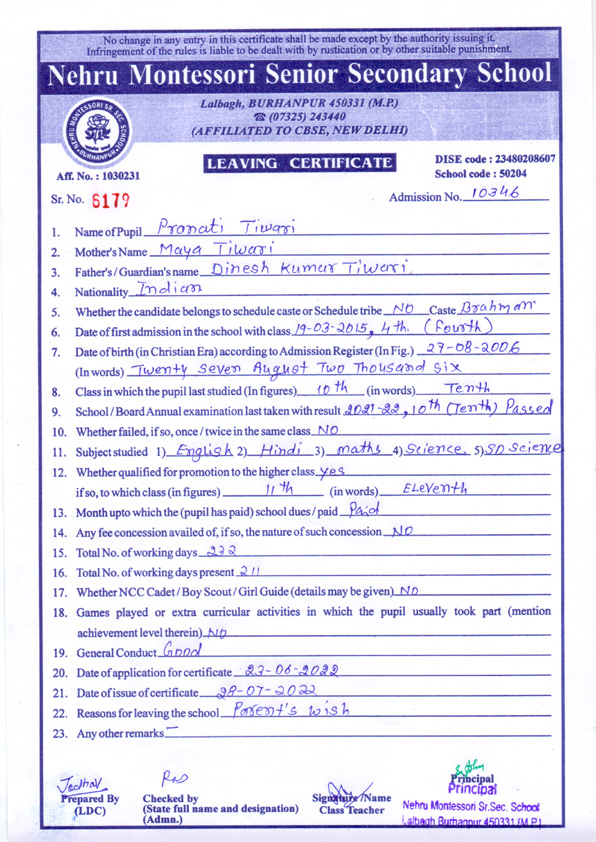 No change in any entry in this certificate shall be made except by the authority issuing it.
Infringement of the rules is liable to be dealt with by rustication or by other suitable punishment.
Nehru Montessori Senior Secondary School
Lalbagh, BURHANPUR 450331 (M.P.)
☎ (07325) 243440
(AFFILIATED TO CBSE, NEW DELHI)
NEHRU MONTESSORI SR. SEC. SCHOOL
BURHANPUR
LEAVING CERTIFICATE
DISE code : 23480208607
School code : 50204
Aff. No. : 1030231
Sr. No. 6179
Admission No. 10346
1. Name of Pupil Pranati Tiwari
2. Mother's Name Maya Tiwari
3. Father's / Guardian's name Dinesh Kumar Tiwari
4. Nationality Indian
5. Whether the candidate belongs to schedule caste or Schedule tribe NO Caste Brahman
6. Date of first admission in the school with class 19-03-2015, 4th. (Fourth)
7. Date of birth (in Christian Era) according to Admission Register (In Fig.) 27-08-2006
(In words) Twenty Seven August Two Thousand Six
8. Class in which the pupil last studied (In figures) 10th (in words) Tenth
9. School / Board Annual examination last taken with result 2021-22, 10th (Tenth) Passed
10. Whether failed, if so, once / twice in the same class NO
11. Subject studied 1) English 2) Hindi 3) maths 4) Science, 5) SO Science
12. Whether qualified for promotion to the higher class yes
if so, to which class (in figures) 11th (in words) Eleventh
13. Month upto which the (pupil has paid) school dues / paid Paid
14. Any fee concession availed of, if so, the nature of such concession NO
15. Total No. of working days 232
16. Total No. of working days present 211
17. Whether NCC Cadet / Boy Scout / Girl Guide (details may be given) NO
18. Games played or extra curricular activities in which the pupil usually took part (mention
achievement level therein) NO
19. General Conduct Good
20. Date of application for certificate 23-06-2022
21. Date of issue of certificate 28-07-2022
22. Reasons for leaving the school Parent's wish
23. Any other remarks —
Jadhav
Prepared By
(LDC)
Checked by
(State full name and designation)
(Admn.)
Signature /Name
Class Teacher
Principal
Principal
Nehru Montessori Sr.Sec. School
Lalbagh Burhanpur 450331 (M.P.)